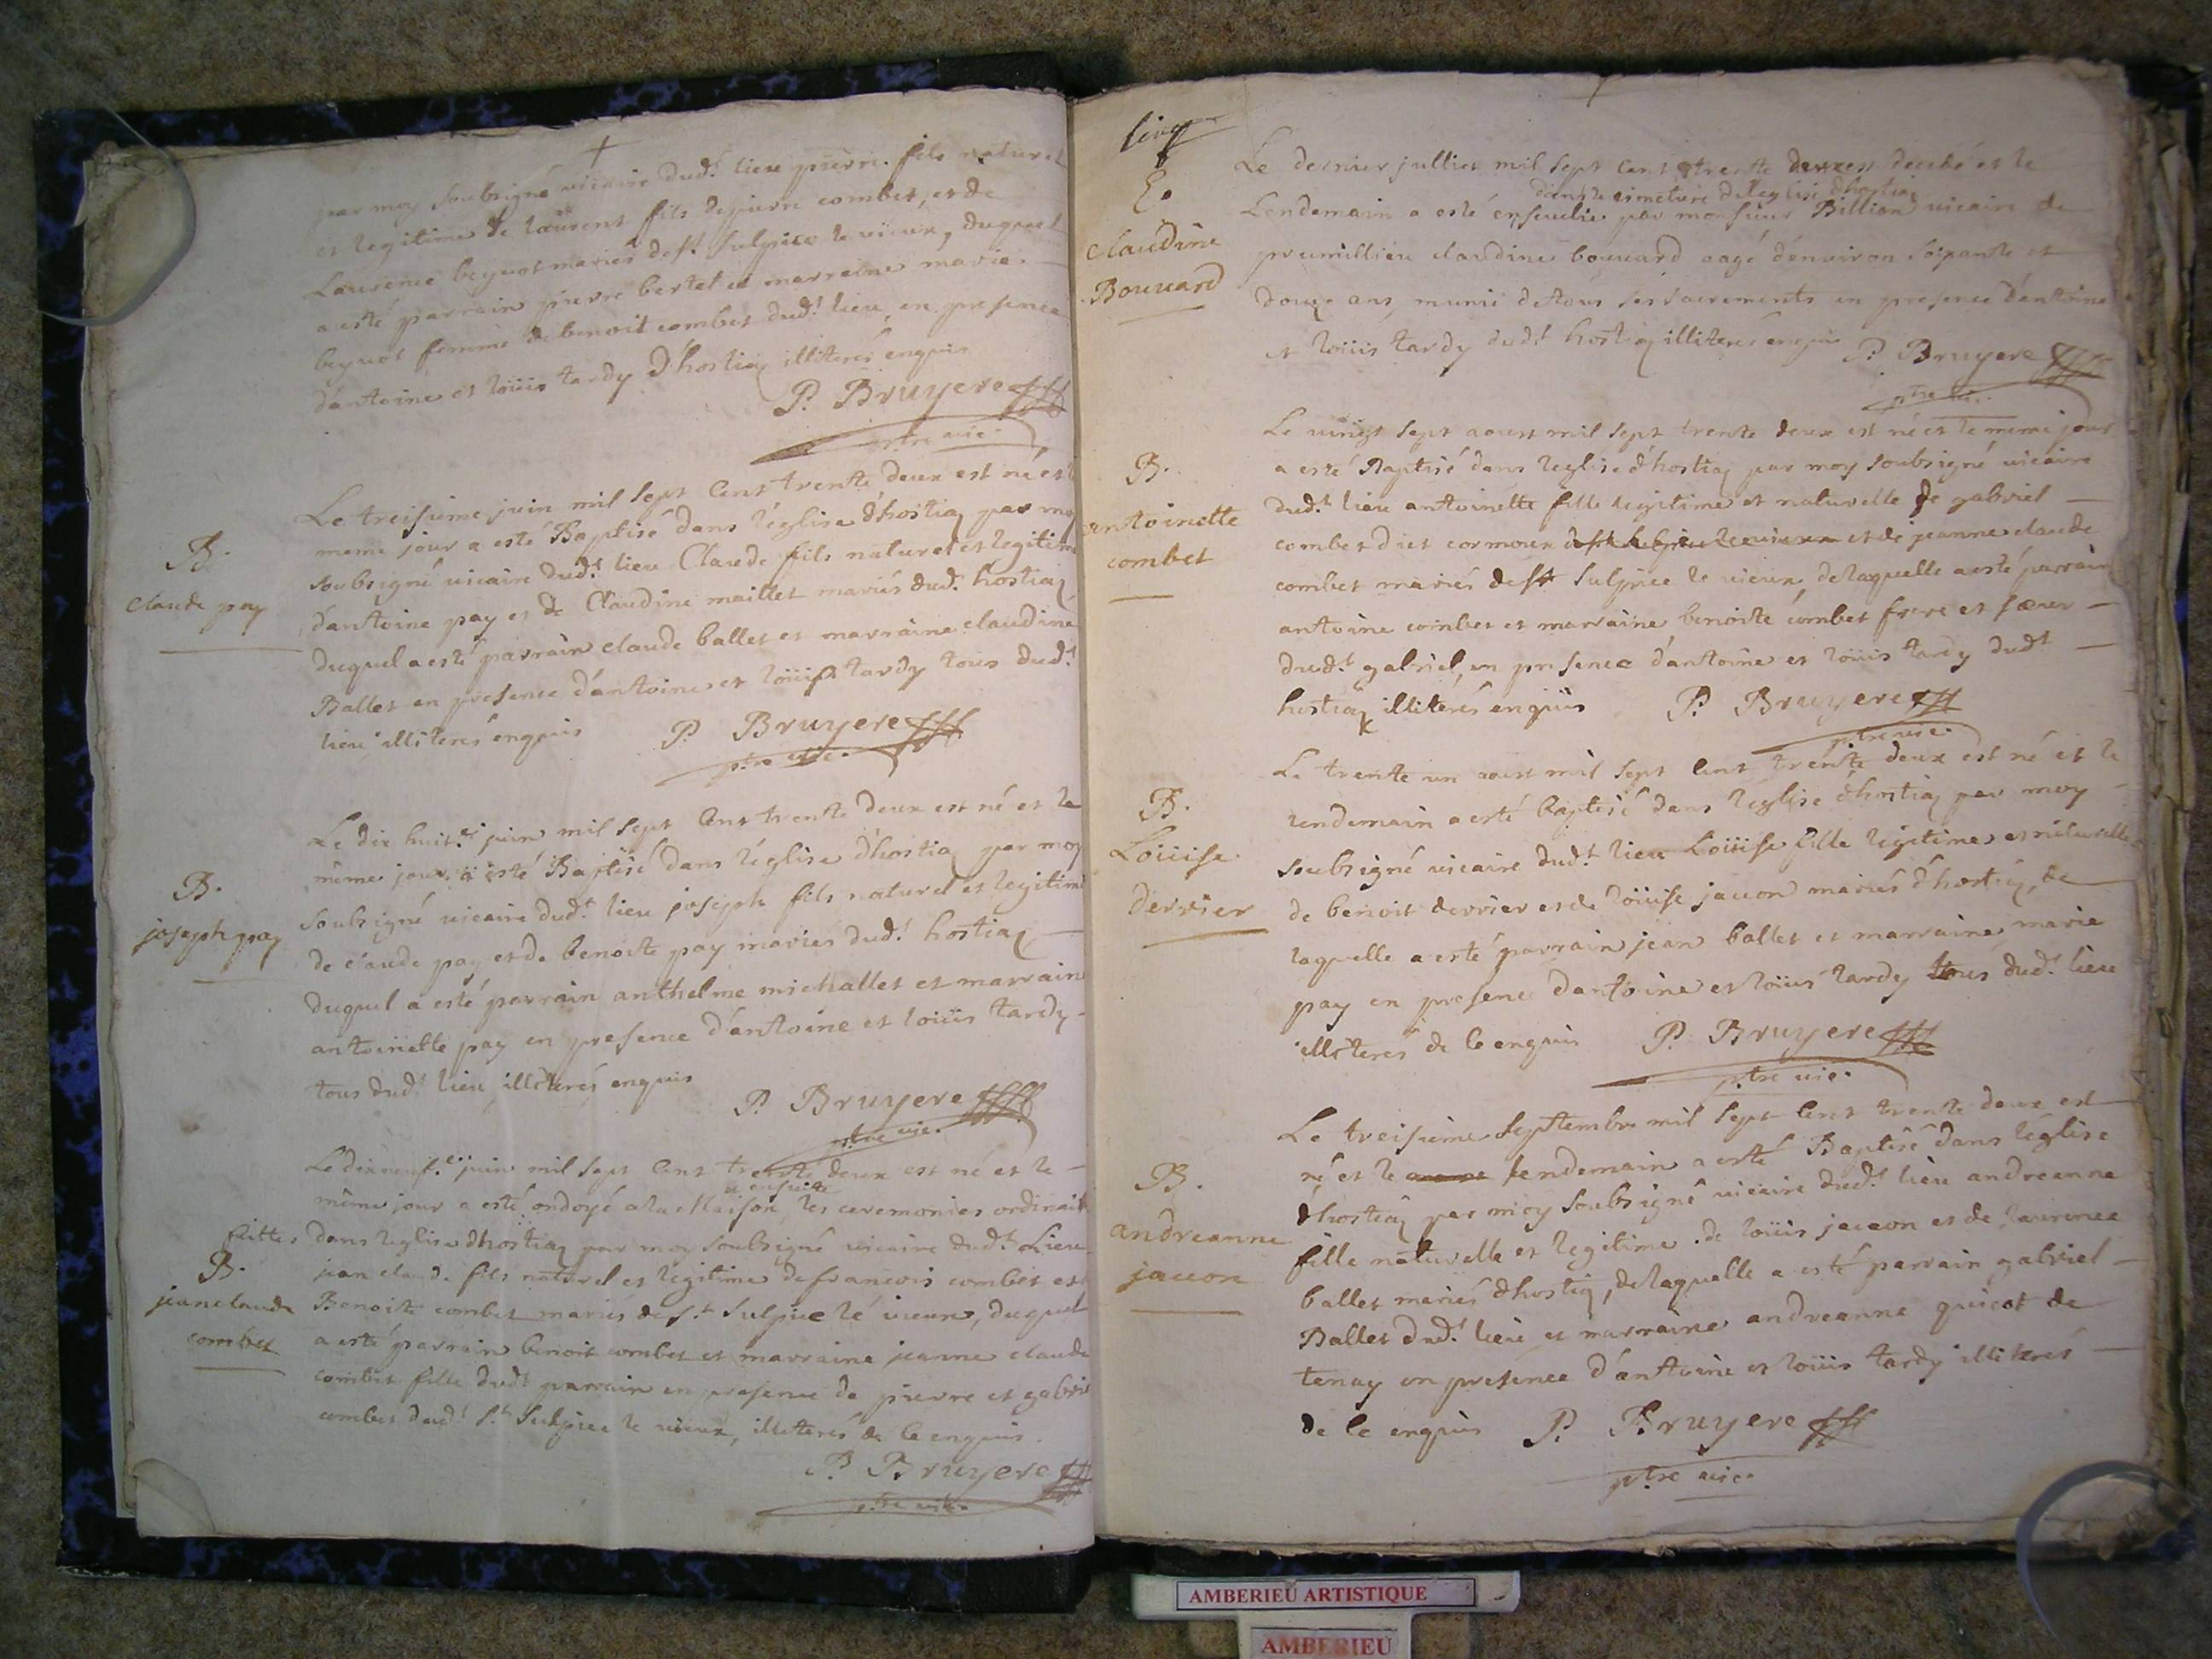 par moy soubsigné vicaire dud.t lieu pierre fils naturel
et legitime de laurent fils de pierre combet, et de
Laurence beguot mariés de s.t Sulpice le vieux, duquel
a esté parrain pierre bertet et marraine marie
beguot femme de benoit combet dud.t lieu, en presence
d'antoine et loüis tardy d'hostiaz illiterés enquis
P. Bruyere
ptre vic.
Le treisieme juin mil sept cent trente deux est né et le
meme jour a esté Baptisé dans l'église d'hostiaz par moy
soubsigné vicaire dud.t lieu Claude fils naturel et legitime
d'antoine pay et de Claudine maillet mariés dud.t hostiaz
duquel a esté parrain claude ballet et marraine claudine
Ballet en presence d'antoine et loüis tardy tous dud.t
lieu illiterés enquis
P. Bruyere
ptre vic.
B.
claude pay
Le dix huit.e juin mil sept cent trente deux est né et le
même jour a esté Baptisé dans l'église d'hostiaz par moy
soubsigné vicaire dud.t lieu joseph fils naturel et legitime
de claude pay et de benoite pay mariés dud.t hostiaz
duquel a esté parrain anthelme michallet et marraine
antoinette pay en presence d'antoine et loüis tardy
tous dud.t lieu illiterés enquis
P. Bruyere
ptre vic.
B.
joseph pay
Le dixneuf.e juin mil sept cent trente deux est né et le
même jour a esté ondoyé a la Maison, et ensuitte les ceremonies ordinaires
faittes dans l'eglise d'hostiaz par moy soubsigné vicaire dud.t Lieu
jean claude fils naturel et legitime de francois combet et
Benoite combet mariés de s.t Sulpice le vieux, duquel
a esté parrain benoit combet et marraine jeanne claude
combet fille dud.t parrain en presence de pierre et gabriel
combet dud.t s.t Sulpice le vieux, illiterés de ce enquis.
P. Bruyere
ptre vic.
B.
jean claude
combet
E.
claudine
Bouuard
Le dernier julliet mil sept cent trente deux est decedé et le
dans le cimetiere de l'eglise d'hostiaz
Lendemain a esté ensevelie par monsieur Billion vicaire de
premillieu claudine bouuard aagé d'environ soipante et
douze ans, munie de tous ses sacrements en presence d'antoine
et loüis tardy dud.t hostiaz illiterés enquis P. Bruyere
ptre vic.
B.
antoinette
combet
Le vingt sept aoust mil sept trente deux est né et le meme jour
a esté Baptisé dans l'eglise d'hostiaz par moy soubsigné vicaire
dud.t lieu antoinette fille legitime et naturelle de gabriel
combet diet cormoux de st sulpice le vieux et de jeanne claude
combet mariés de st Sulpice le vieux, de laquelle a esté parrain
antoine combet et marraine benoite combet frere et soeur
dud.t gabriel, en presence d'antoine et loüis tardy dud.t
hostiaz illiterés enquis P. Bruyere
ptre vic.
B.
Loüise
derrier
Le trente un aoust mil sept cent trente deux est né et le
lendemain a esté baptisé dans l'eglise d'hostiaz par moy
soubsigné vicaire dud.t lieu Loüise fille legitime et naturelle
de benoit derrier et de loüise jacon mariés d'hostiaz, de
laquelle a esté parrain jean ballet et marraine marie
pay en presence d'antoine et loüis tardy tous dud.t lieu
illiterés de ce enquis P. Bruyere
ptre vic.
B.
andreanne
jacon
Le treisieme Septembre mil sept cent trente deux est
né et le lendemain a esté Baptisé dans l'église
d'hostiaz par moy soubsigné vicaire dud.t lieu andreanne
fille naturelle et legitime de loüis jacon et de laurence
ballet mariés d'hostiaz, de laquelle a esté parrain gabriel
Ballet dud.t lieu et marraine andreanne quicot de
tenay en presence d'antoine et loüis tardy illiterés
de ce enquis P. Bruyere
ptre vic.
AMBERIEU ARTISTIQUE
AMBERIEU